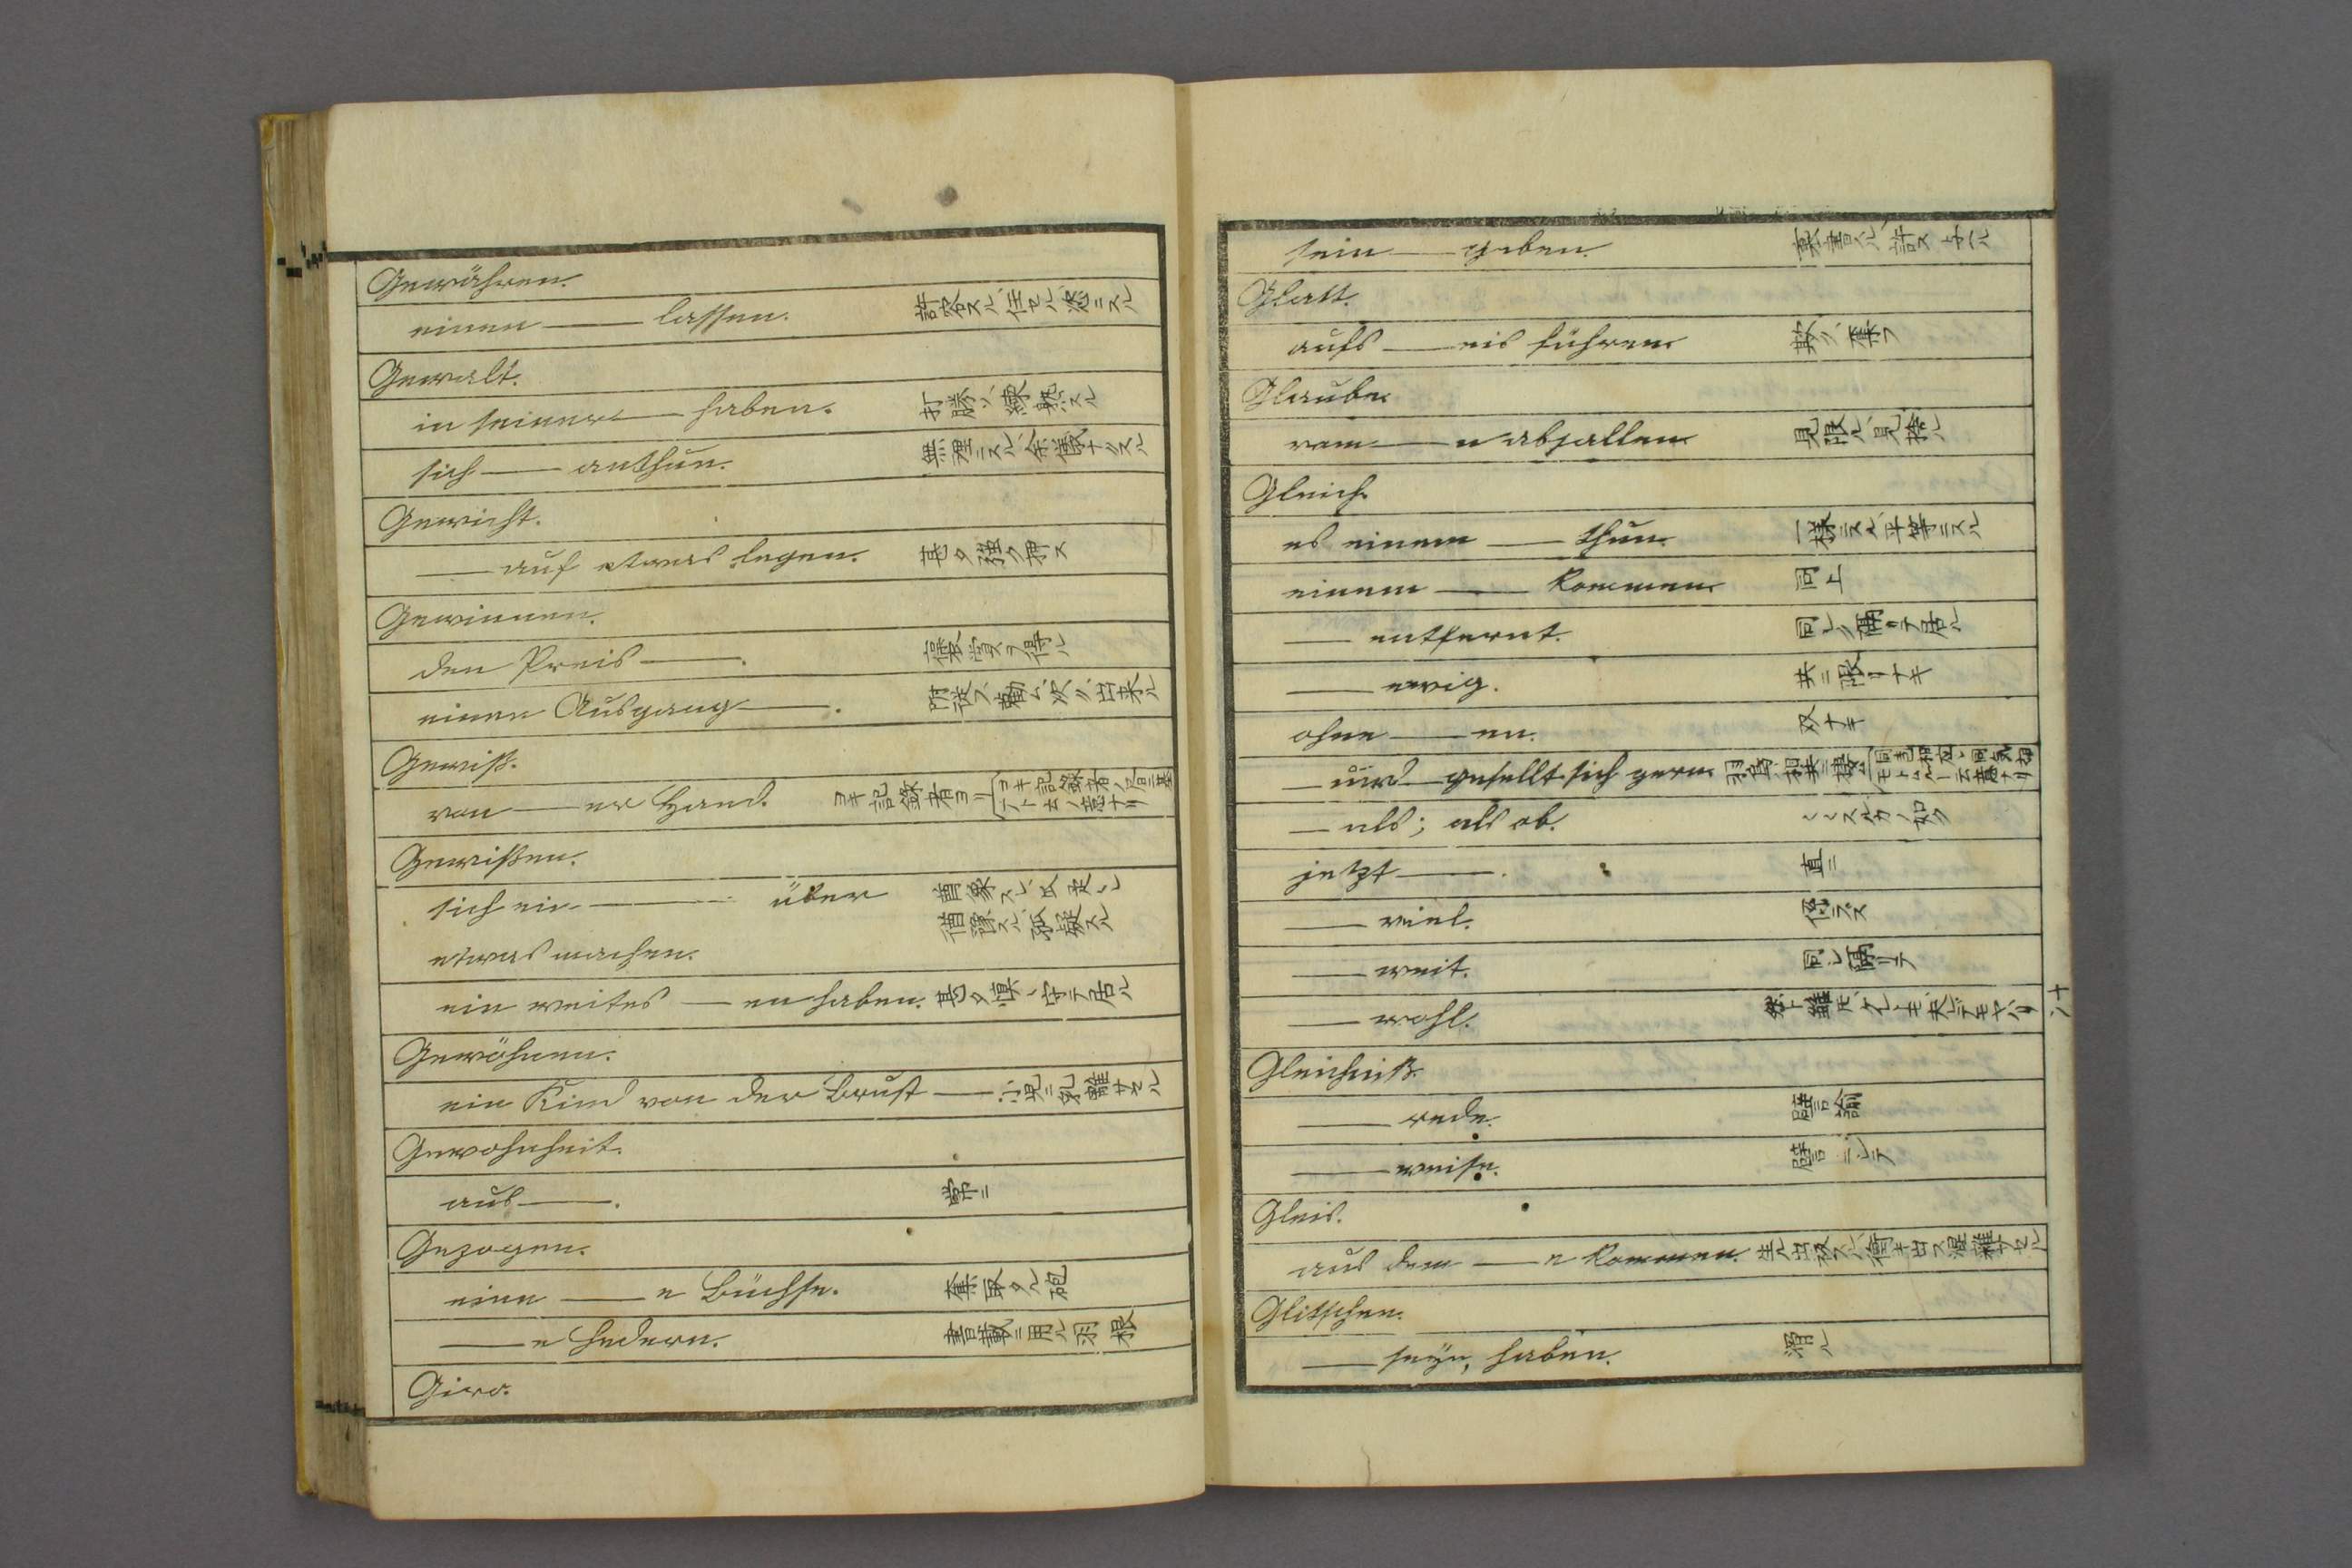 Gewähren.
einen — lassen. 許容スル、任セル、恣ニスル
Gewalt.
in seiner — haben. 打勝ツ、練熟スル
sich — anthun. 無理ニスル、余儀ナクスル
Gewicht.
— auf etwas legen. 甚タ強ク押ス
Gewinnen.
den Preis —. 褒賞ヲ得ル
einen Ausgang —. 出来ル
Gewiß.
von — er Hand. ヨキ記録者ヨリ
Gewißen.
sich ein — über
etwas machen.
ein weites — en haben. 甚タ慎ミ守テ居ル
Gewöhnen.
ein Kind von der Brust — 小児ニ乳離サセル
Gewohnheit.
aus —. 常ニ
Gezogen.
eine — e Büchse.
— e Federn. 書載ニ用ル羽根
Giro.
sein — geben. 裏書スル、許ス、与ヘル
Glatt.
aufs — eis führen. 欺ク、奪フ
Glaube.
vom — n abfallen. 見限ル、見捨ル
Gleich.
es einem — thun. 一様ニスル、平等ニスル
einem — kommen. 同上
— entfernt. 同シク隔リテ居ル
— ewig. 共ニ限リナキ
ohne — en. 双ナキ
— und — gesellt sich gern.
— als; als ob. スルカノ如ク
jetzt —. 直ニ
— viel.
— weit. 同シク隔リテ
— wohl.
Gleichniß.
— rede. 譬諭
— weise. 譬ニシテ
Gleis.
aus dem — e kommen.
Glitschen.
— seyn, haben. 滑ル